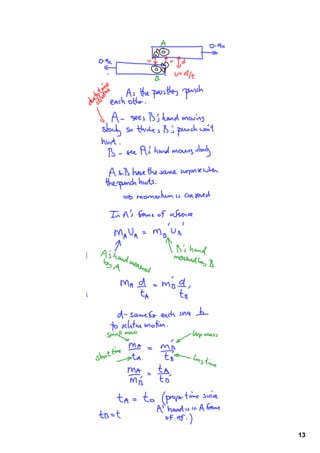 A
0.9c
0.9c
u
u
d
B
u=d/t
As the pass they punch
each other.
A - sees B's hand moving
slowly so thinks B's punch wont
hurt.
B - see A's hand moving slowly
A & B have the same surprise when
the punch hurts.
⇒ momentum is conserved
In A's frame of reference
M_A U_A = m_B' U_B'
A's hand measured
by A
B's hand
measured by B
m_A d/t_A = m_B' d/t_B'
d - same for each since ⊥
to relative motion.
small mass
large mass
m_A/t_A = m_B'/t_B'
short time
long time
m_A/m_B' = t_A/t_B'
t_A = t_0 (proper time since
A's hand is in A frame
of ref.)
t_B = t
13